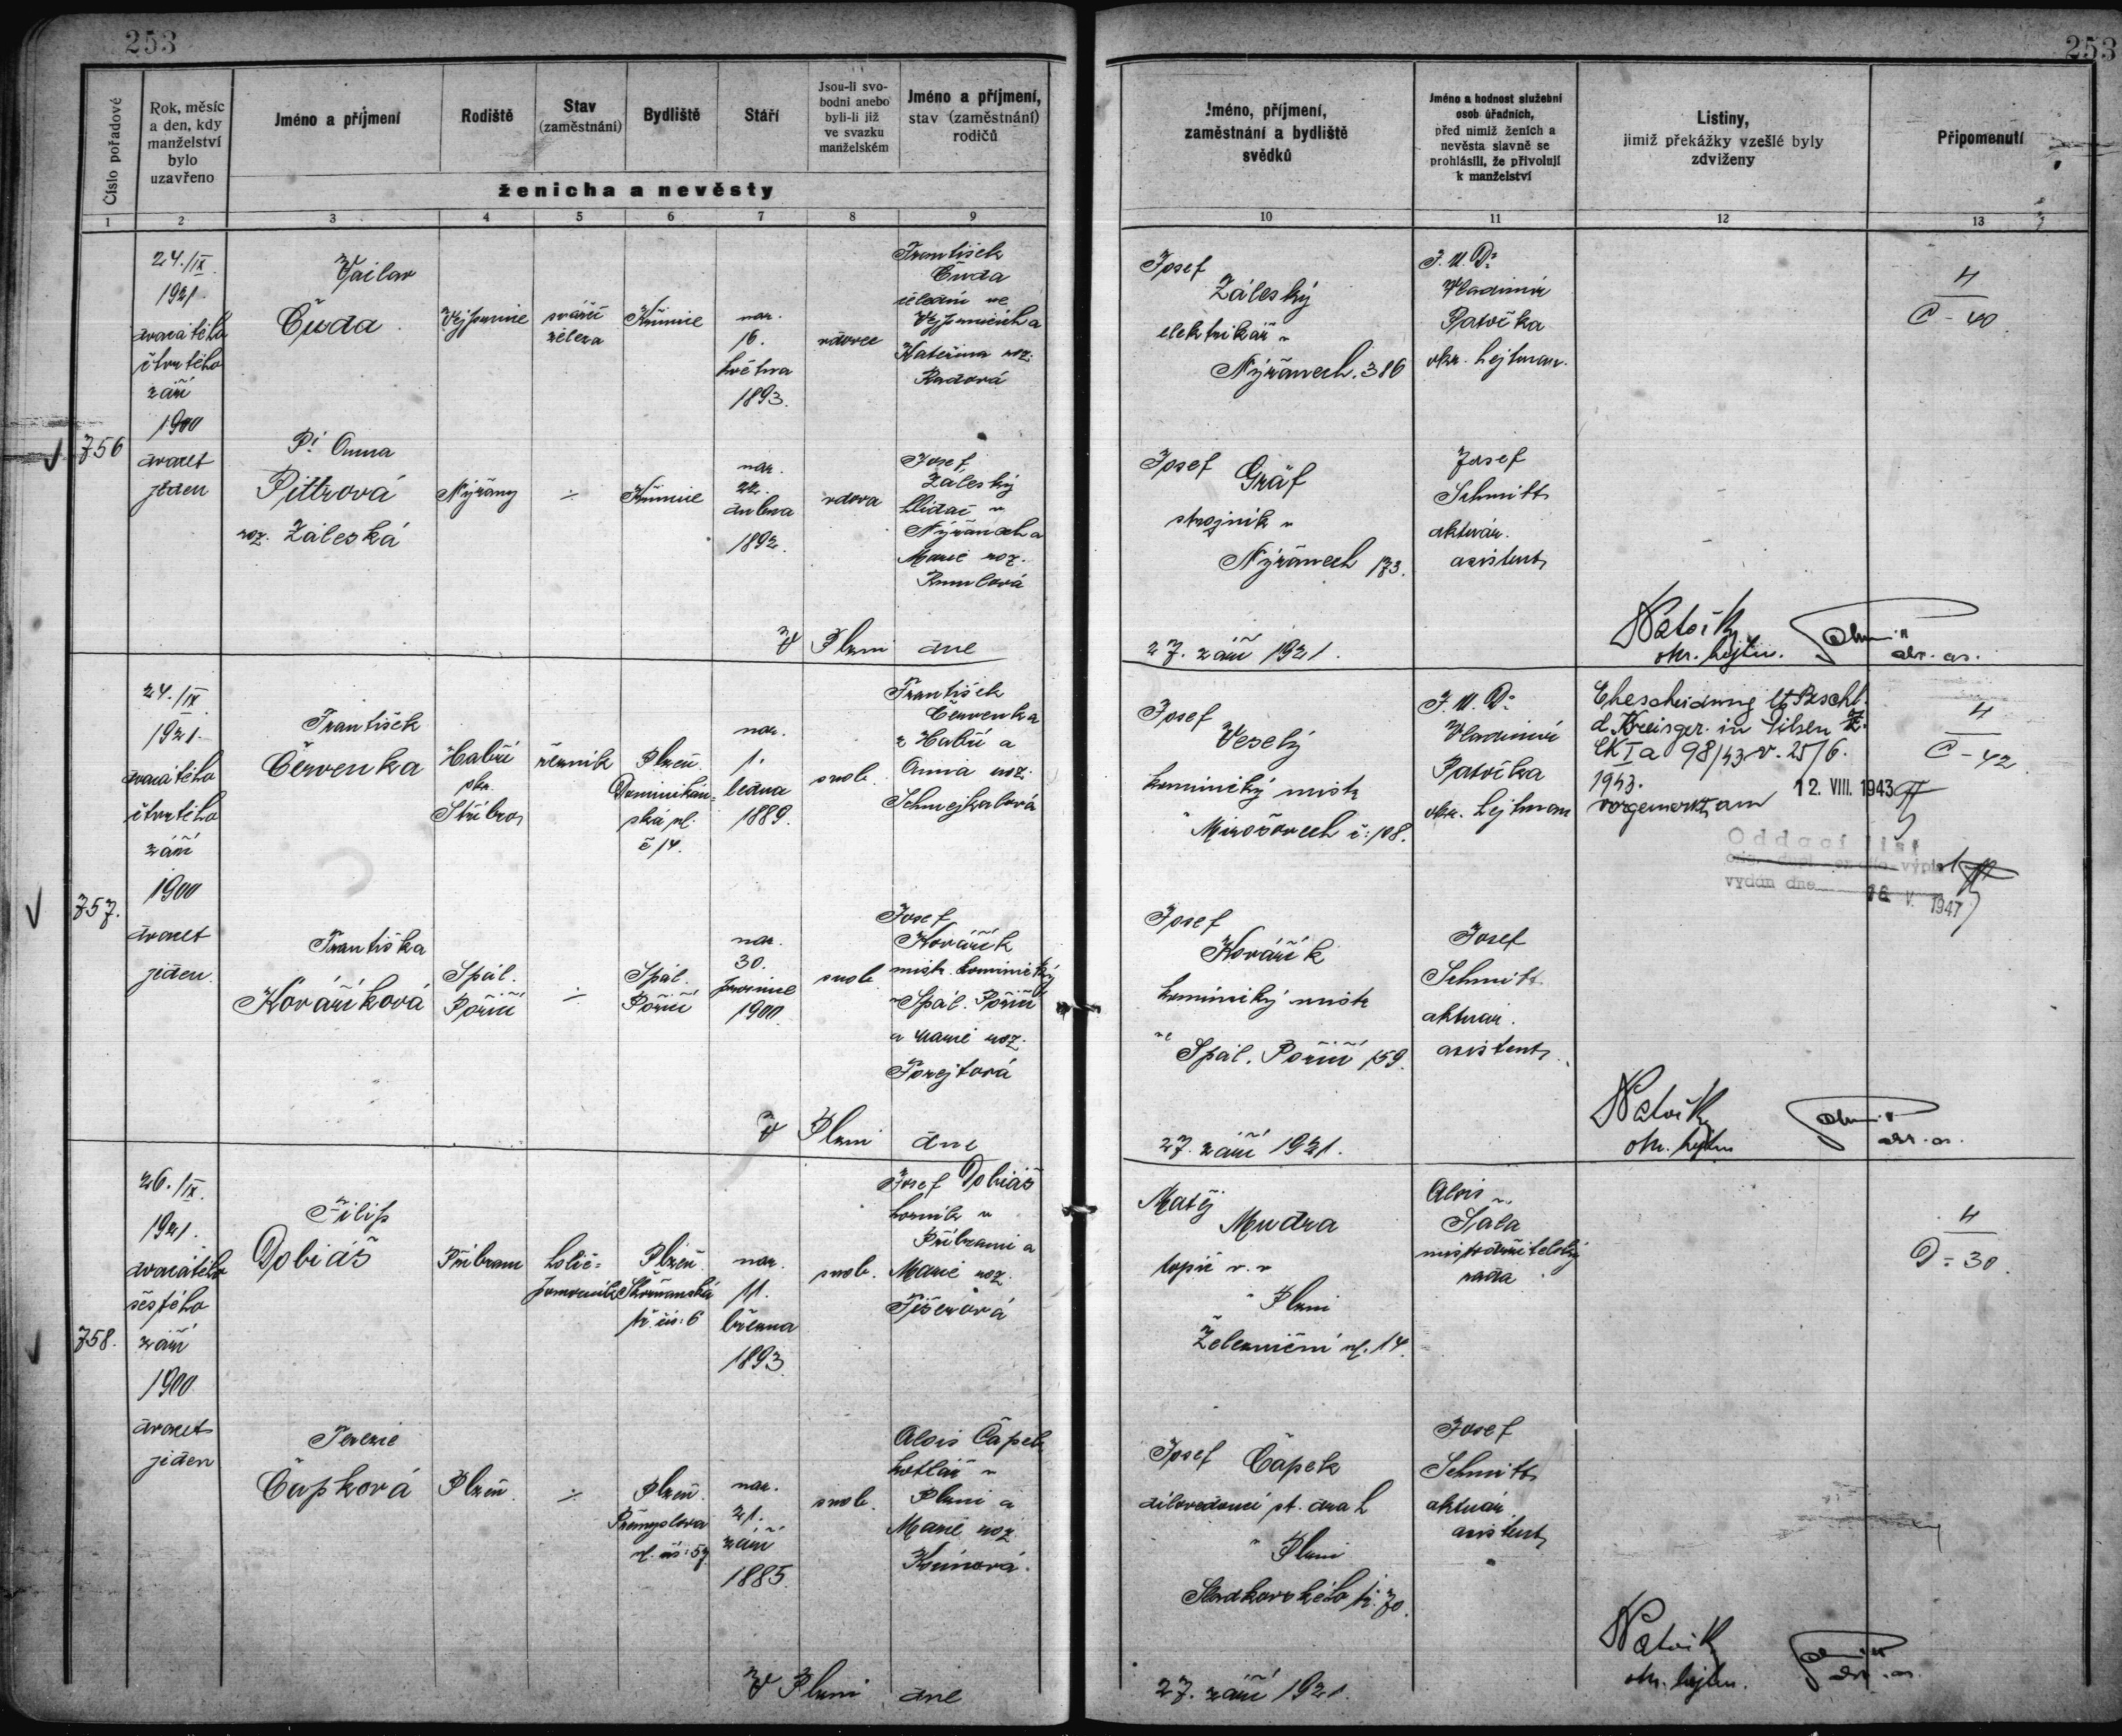 253
Číslo pořadové
Rok, měsíc
a den, kdy
manželství
bylo
uzavřeno
Jméno a příjmení
Rodiště
Stav
(zaměstnání)
Bydliště
Stáří
Jsou-li svo-
bodni anebo
byli-li již
ve svazku
manželském
Jméno a příjmení,
stav (zaměstnání)
rodičů
ženicha a nevěsty
1 2 3 4 5 6 7 8 9
756
24./IX.
1921.
dvacátého
čtvrtého
září
1900
dvacet
jeden
Václav
Čuda
Vejprnice
svářič
železa
Křimice
nar.
16.
května
1893.
vdovec
František
Čuda
ve
Vejprnicích a
Kateřina roz.
Radová
Pí Anna
Pittrová
roz. Záleská
Nýřany
÷
Křimice
nar.
22.
dubna
1892.
vdova
Josef
Záleský
hlídač v
Nýřanech a
Marie roz.
V Plzni dne
757.
24./IX.
1921.
dvacátého
čtvrtého
září
1900
dvacet
jeden
František
Červenka
okr.
Stříbro
řezník
Plzeň
Dominikán-
ská ul.
č 14.
nar.
1.
ledna
1889.
svob.
František
Červenka
a
Anna roz.
Schmejkalová
Františka
Kováříková
Spál.
Poříčí
÷
Spál.
Poříčí
nar.
30.
prosince
1900.
svob.
Josef
Kovářík
mistr kominický
v Spál. Poříčí
a Marie roz.
Forejtová
V Plzni dne
758.
26./IX.
1921.
dvacátého
šestého
září
1900
dvacet
jeden
Filip
Dobiáš
Příbram
holič-
pomocník
Plzeň
Skvrňanská
tř. čís: 6
nar.
11.
března
1893.
svob.
Josef Dobiáš
horník v
Příbrami a
Marie roz.
Fišerová
Terezie
Čapková
Plzeň
÷
Plzeň.
Přemyslova
ul. čís: 57
nar.
21.
září
1885.
svob.
Alois Čapek
kotlář v
Plzni a
Marie roz.
V Plzni dne
253
Jméno, příjmení,
zaměstnání a bydliště
svědků
Jméno a hodnost služební
osob úřadních,
před nimiž ženich a
nevěsta slavně se
prohlásili, že přivolují
k manželství
Listiny,
jimiž překážky vzešlé byly
zdviženy
Připomenutí
10 11 12 13
Josef
Záleský
elektrikář v
Nýřanech. 386
J. U. Dr
Vladimír
Patočka
okr. hejtman.
4
C - 40
Josef Gräf
strojník v
Nýřanech 173.
Josef
Schmitt
aktuár.
asistent
27. září 1921.
okr. hejtm.
Josef
Veselý
kominický mistr
v Mirošovech č: 108.
J. U. Dr
Vladimír
Patočka
okr. hejtman
Ehescheidung lt Beschl.
d. Kreisger. in Pilsen Z.
CK I a 98/43 v. 25/6.
1943.
vorgemerkt am 12. VIII. 1943
Oddací list
vydán dne 16. V. 1947
4
C - 42
Josef
Kovářík
kominický mistr
ve Spál. Poříčí 159.
Josef
Schmitt
aktuár.
asistent
27. září 1921.
okr. hejtm
Matěj
Mudra
topič v. v.
v Plzni
Železniční ul. 14.
Alois
Šafa
místodržitelský
rada
4
D - 30
Josef Čapek
dílovedoucí st. drah
v Plzni
Sladkovského tř. 70.
Josef
Schmitt
aktuár.
asistent
27. září 1921.
okr. hejtm.